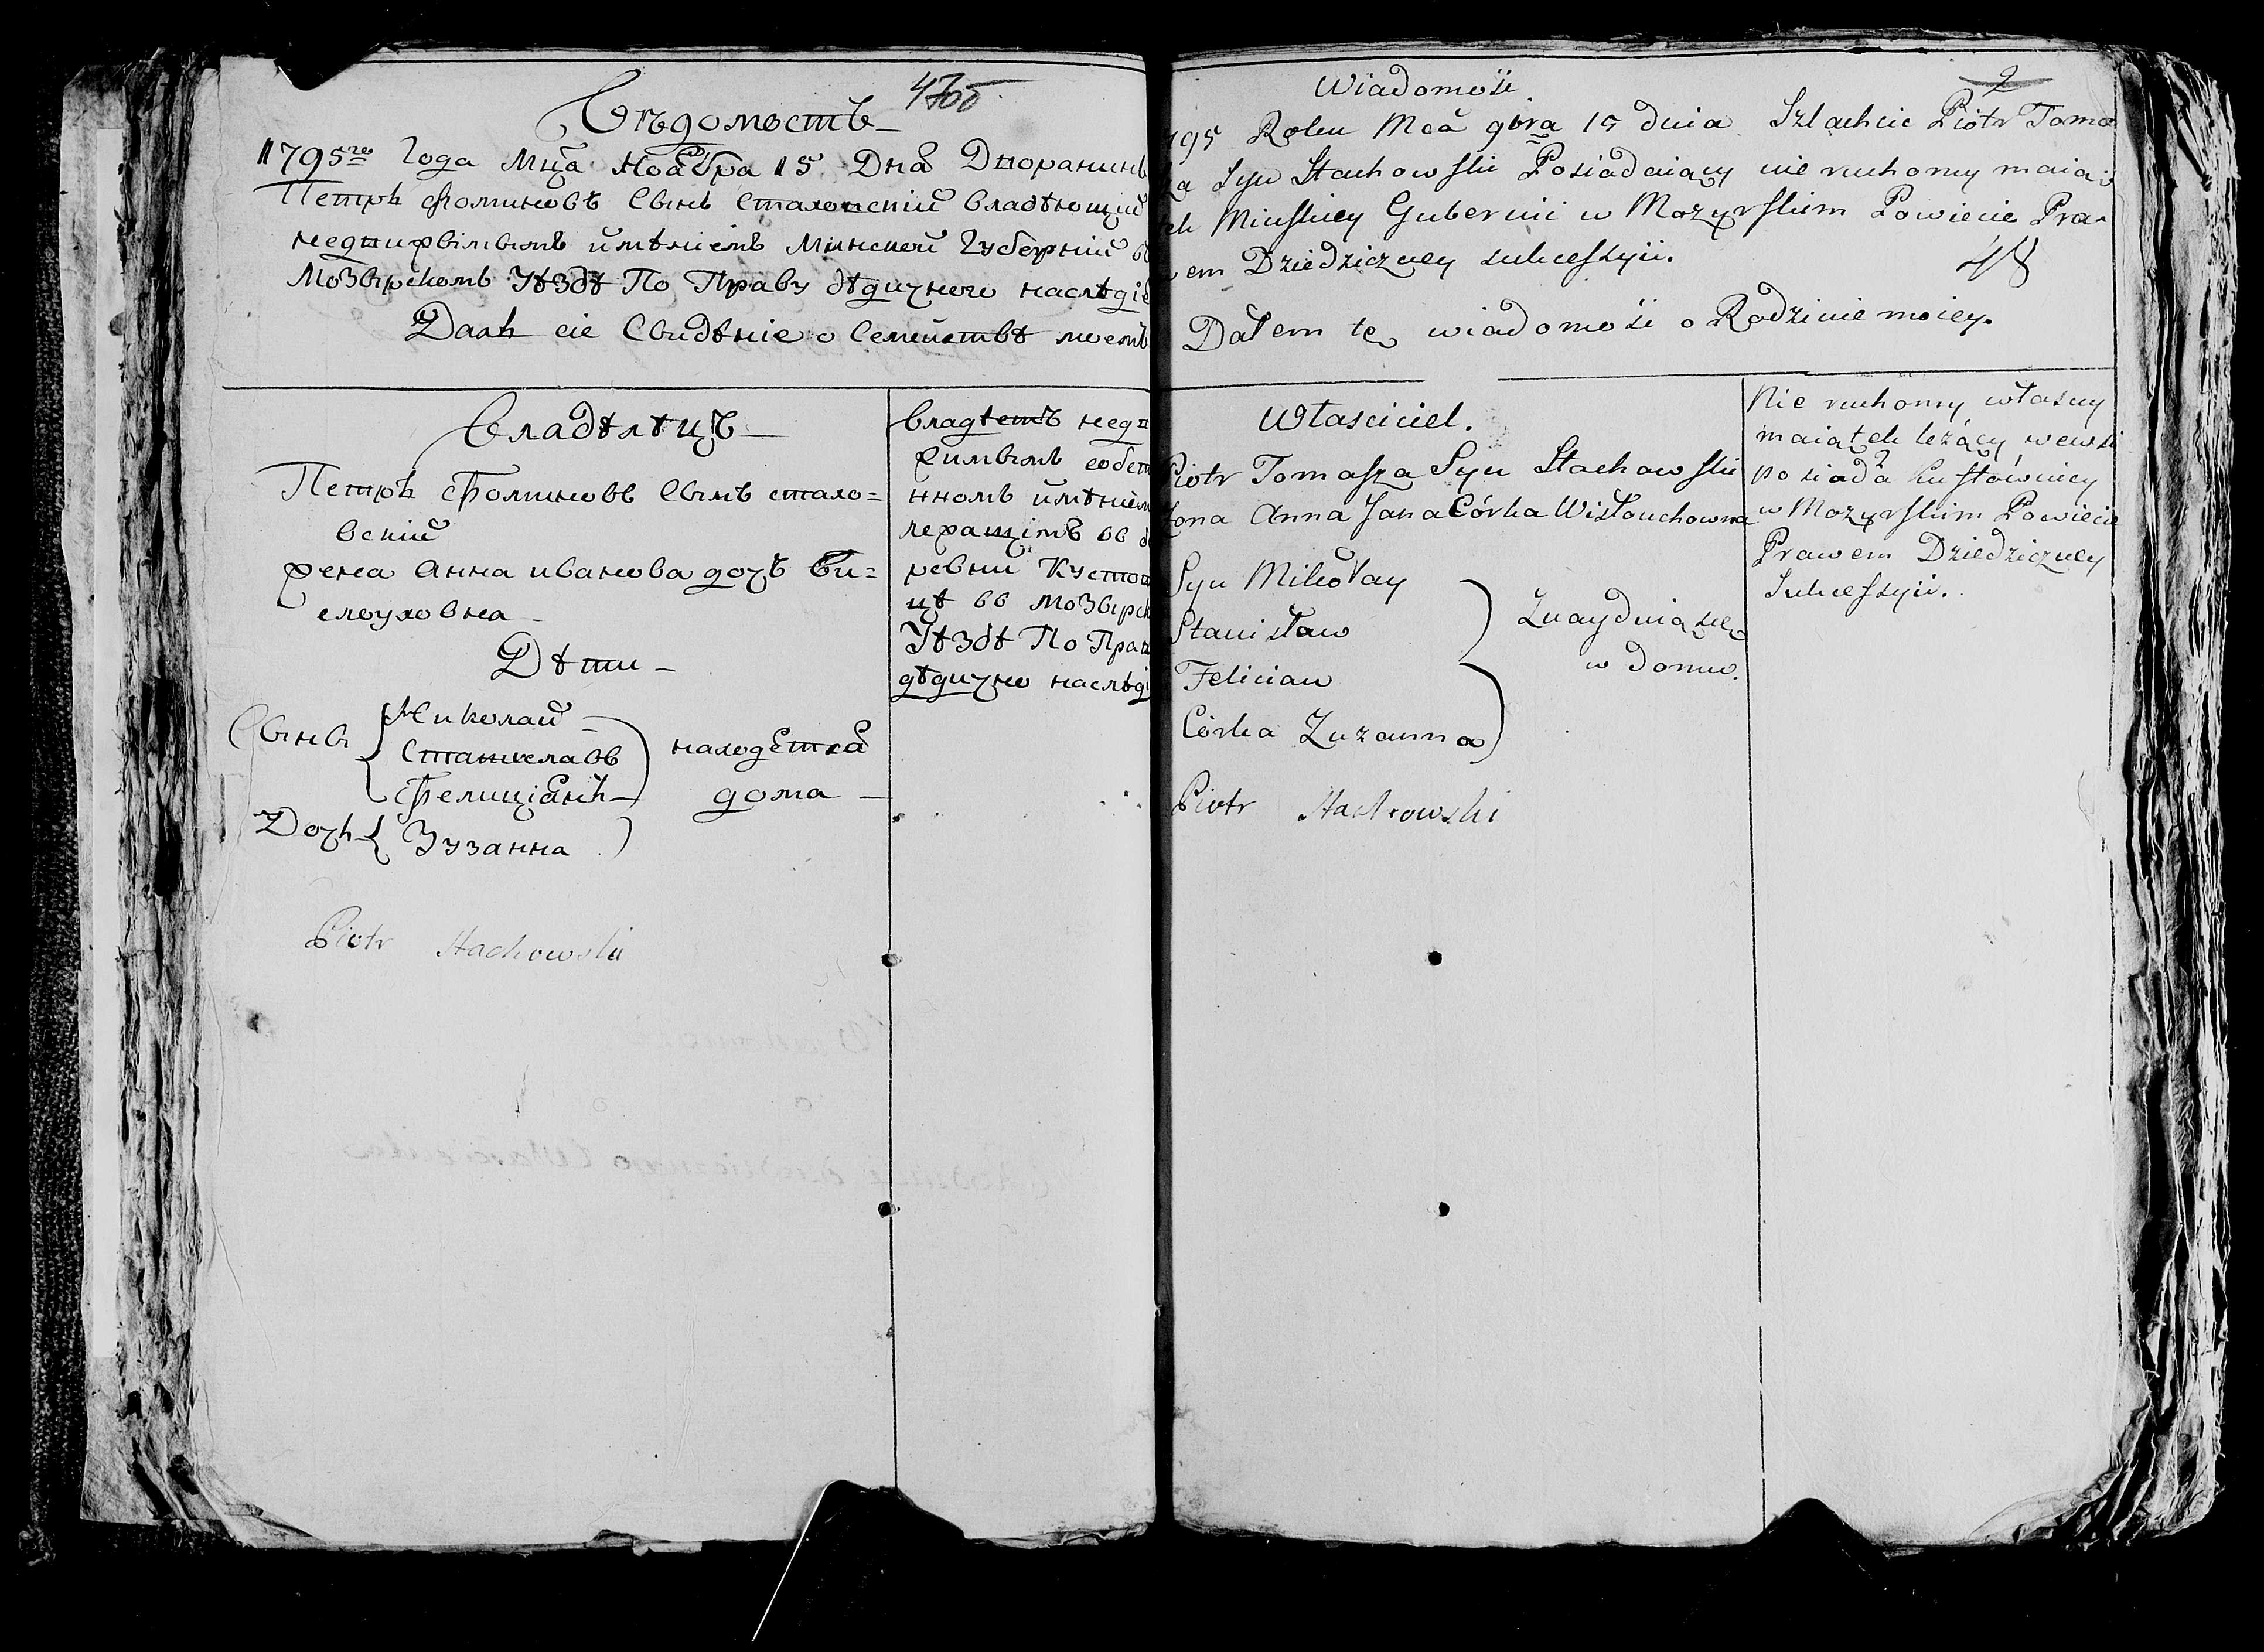 47об
Вѣдомость
1795го Года Мца Ноабра 15 Дна Дворанинъ
Петръ Фоминовъ Сынъ Стаховскій Владѣющій
недвижвимымъ имѣніемъ Минской Губерніи въ
Мозырскомъ Уѣздѣ По Праву дѣдичнего наслѣдіе
Далъ сіе Свидѣніе о Семействѣ моемъ
Владѣлѣцъ
Петръ Фоминовъ Сынъ стахо=
вскій
жена Анна иванова дочь Ви=
слоуховна
Дѣти
Сыны
Николай
Станиславъ
Фелиціанъ
находетса
дома
Дочь
Зузанна
Piotr Stachowski
владѣетъ недв
жимымъ собст
нномъ имѣніем
лежащімъ въ д
ревни Кустов
цѣ въ Мозырск
Уѣздѣ По Прав
дѣдично наслѣді
Wiadomość
2
48
795 Roku Mca 9bra 15 dnia Szlachcic Piotr Toma
za Syn Stachowski Posiadaiący nie ruchomy maią
tek Minskiey Gubernii w Mozyrskim Powiecie Pra-
wem Dziedziczney sukcessyii.
Dałem tę wiadomość o Rodzinie moiey.
Własciciel.
Piotr Tomasza Syn Stachowski
żona Anna Jana Córka Wisłouchowna
Syn Mikołay
Stanisław
Felician
Córka Zuzanna
Znayduią się
w domu.
Piotr Stachowski
Nie ruchomy własny
maiątek leżący wewsi
posiada Kustowiicy
w Mozyrskim Powiecie
Prawem Dziedziczney
Sukcessyii.